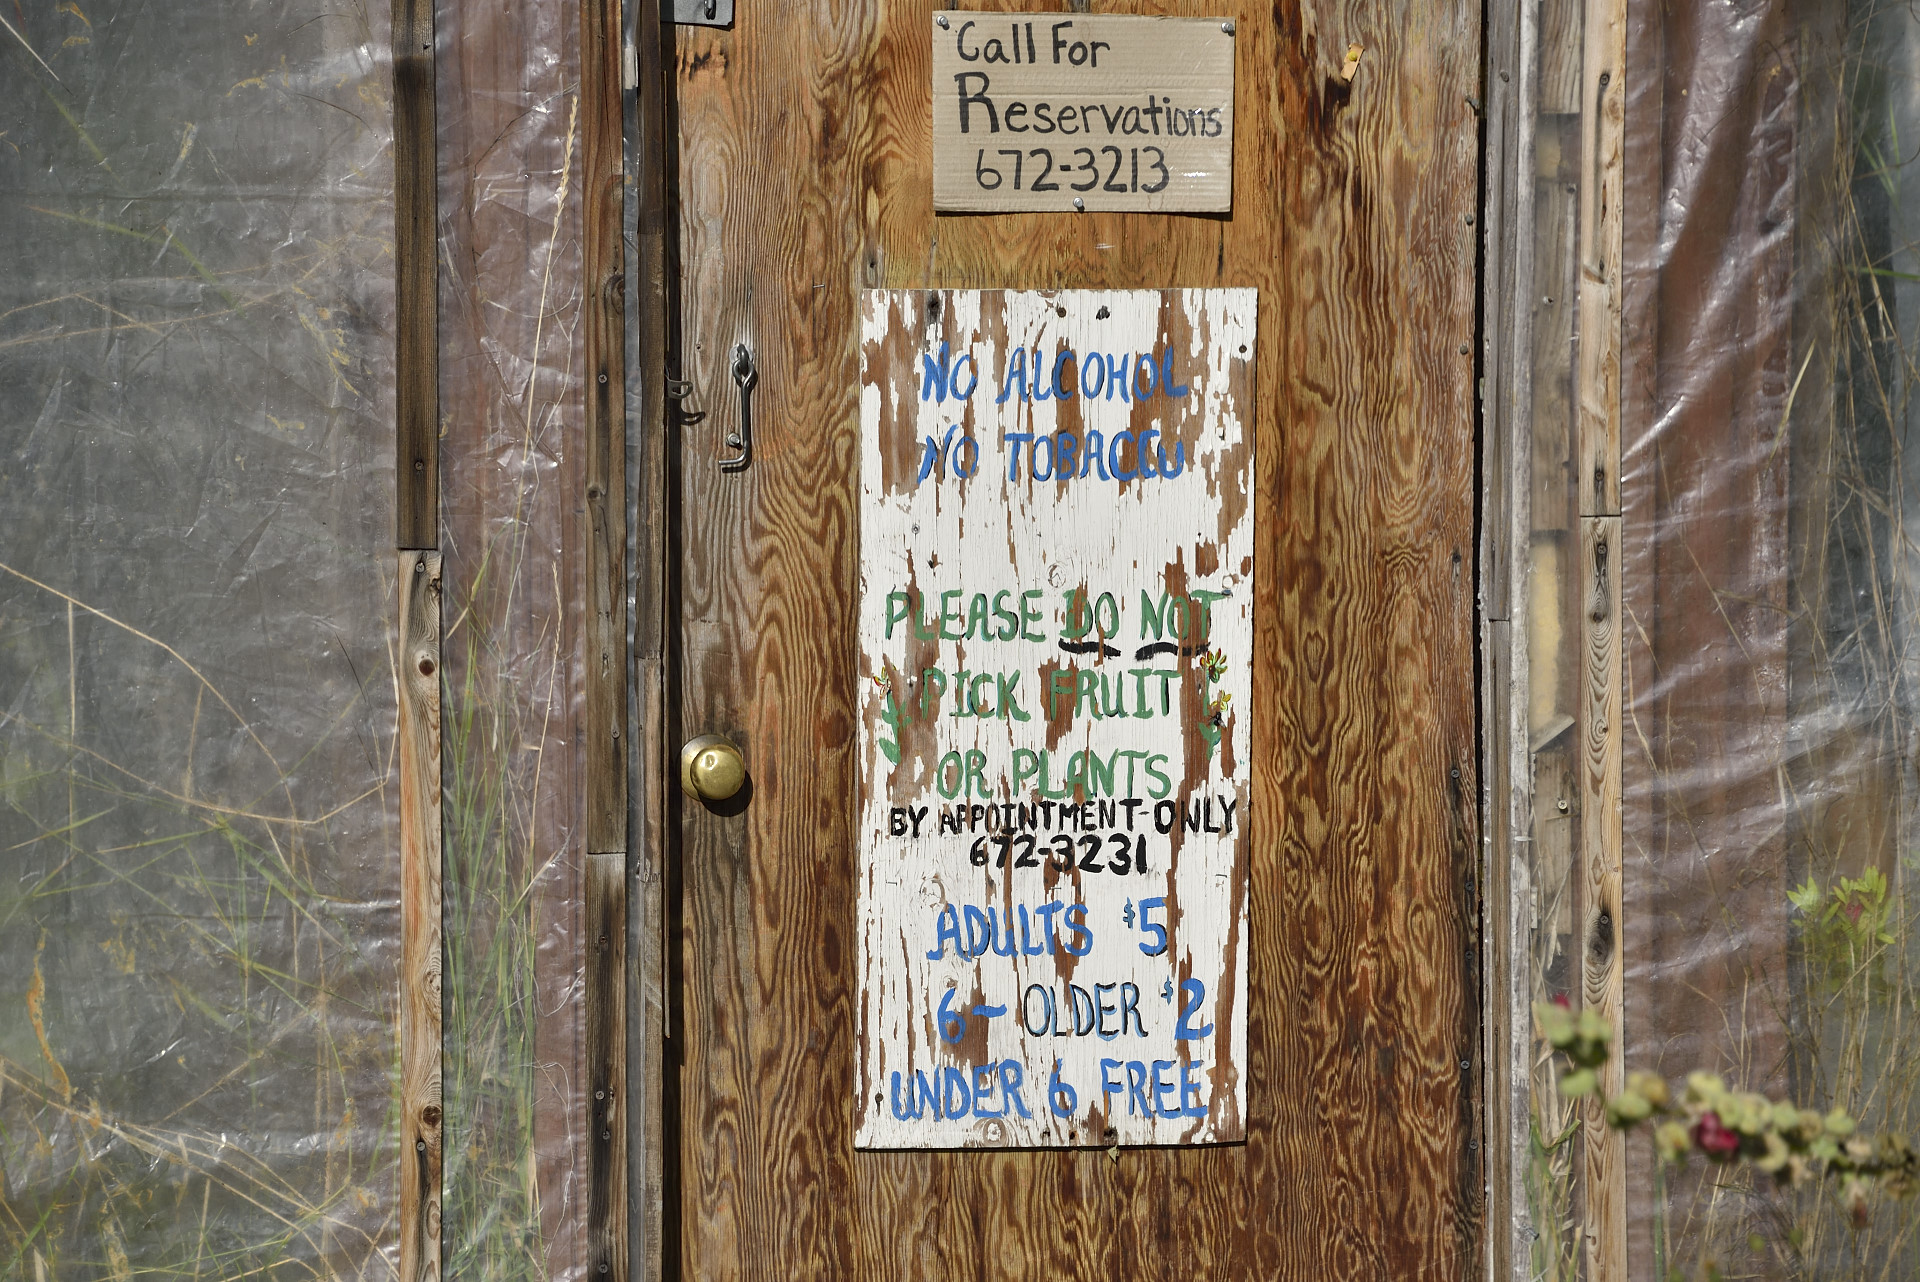 Call For
Reservations
672-3213
NO ALCOHOL
NO TOBACCO
PLEASE DO NOT
PICK FRUIT
OR PLANTS
BY APPOINTMENT-ONLY
672-3231
ADULTS $5
6- OLDER $2
UNDER 6 FREE